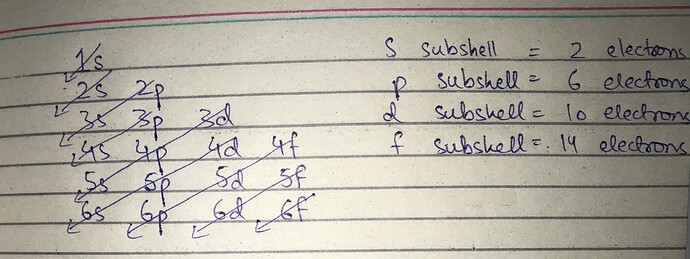 1s S subshell = 2 electrons
2s 2p p subshell = 6 electrons
3s 3p 3d d subshell = 10 electrons
4s 4p 4d 4f f subshell = 14 electrons
5s 5p 5d 5f
6s 6p 6d 6f